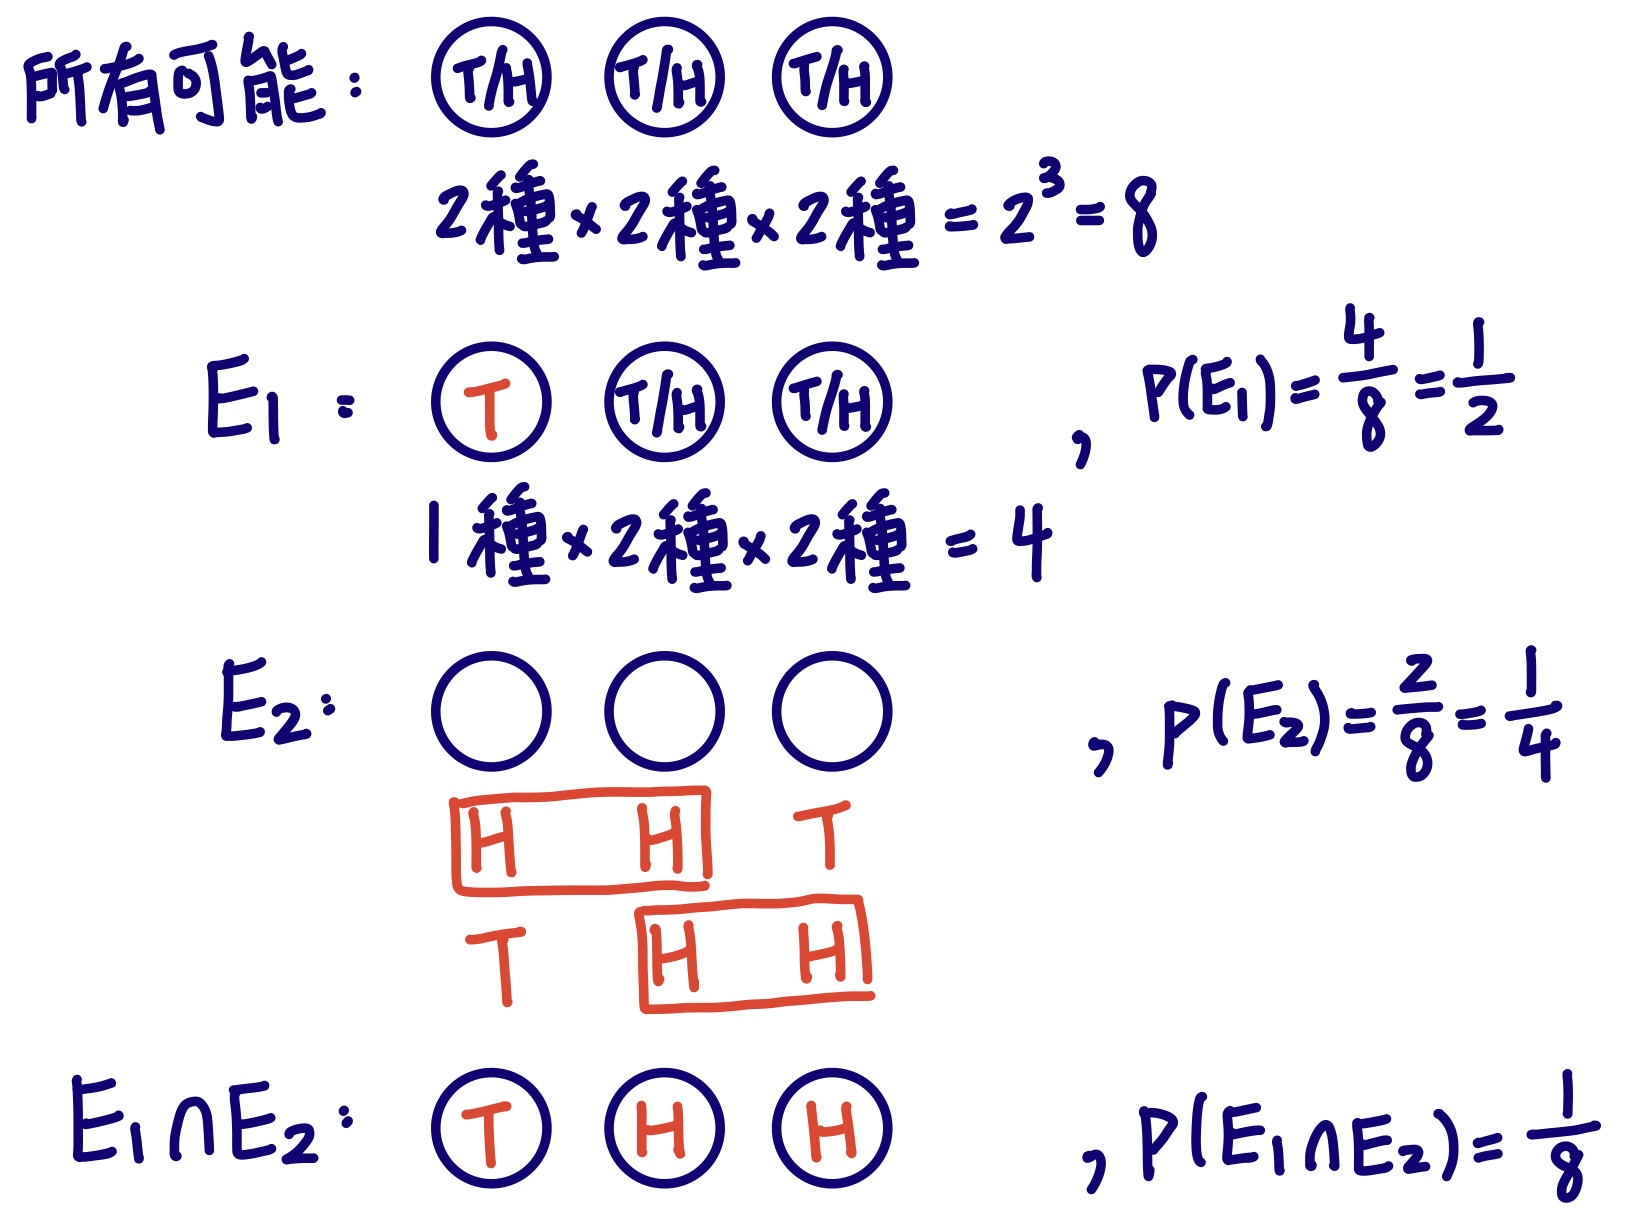 所有可能: T/H T/H T/H
2種×2種×2種=2³=8
E₁: T T/H T/H , P(E₁)=4/8=1/2
1種×2種×2種=4
E₂: , P(E₂)=2/8=1/4
H H T
T H H
E₁∩E₂: T H H , P(E₁∩E₂)=1/8